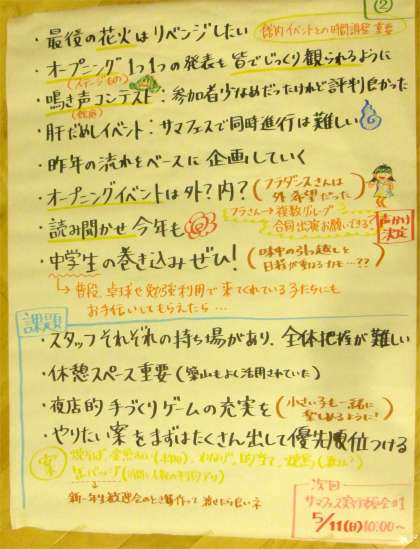 ②
・最後の花火はリベンジしたい
館内イベントとの時間調整 重要
・オープニング 1つ1つの発表も皆でじっくり観られるように
(ステージもの)
・鳴き声コンテスト：参加者少なめだったけれど評判良かった
・肝だめしイベント：サマフェスで同時進行は難しい
・昨年の流れをベースに企画していく
・オープニングイベントは外？内？(フラダンスさんは外希望だった)
フラさん→複数グループ
合同出演お願いできる？
声かけ決定
・読み聞かせ 今年も
・中学生の巻き込みぜひ！
→普段、卓球や勉強利用で来てくれている子たちにも
お手伝いしてもらえたら…
課題
・スタッフそれぞれの持ち場があり、全体把握が難しい
・休憩スペース重要(築山もよく活用されていた)
・夜店的 手づくりゲームの充実を(小さい子も一緒に楽しめるように！)
・やりたい案をまずはたくさん出して優先順位つける
案
缶バッジ
次回
サマフェス実行委員会#1
5/11(日)10:00〜